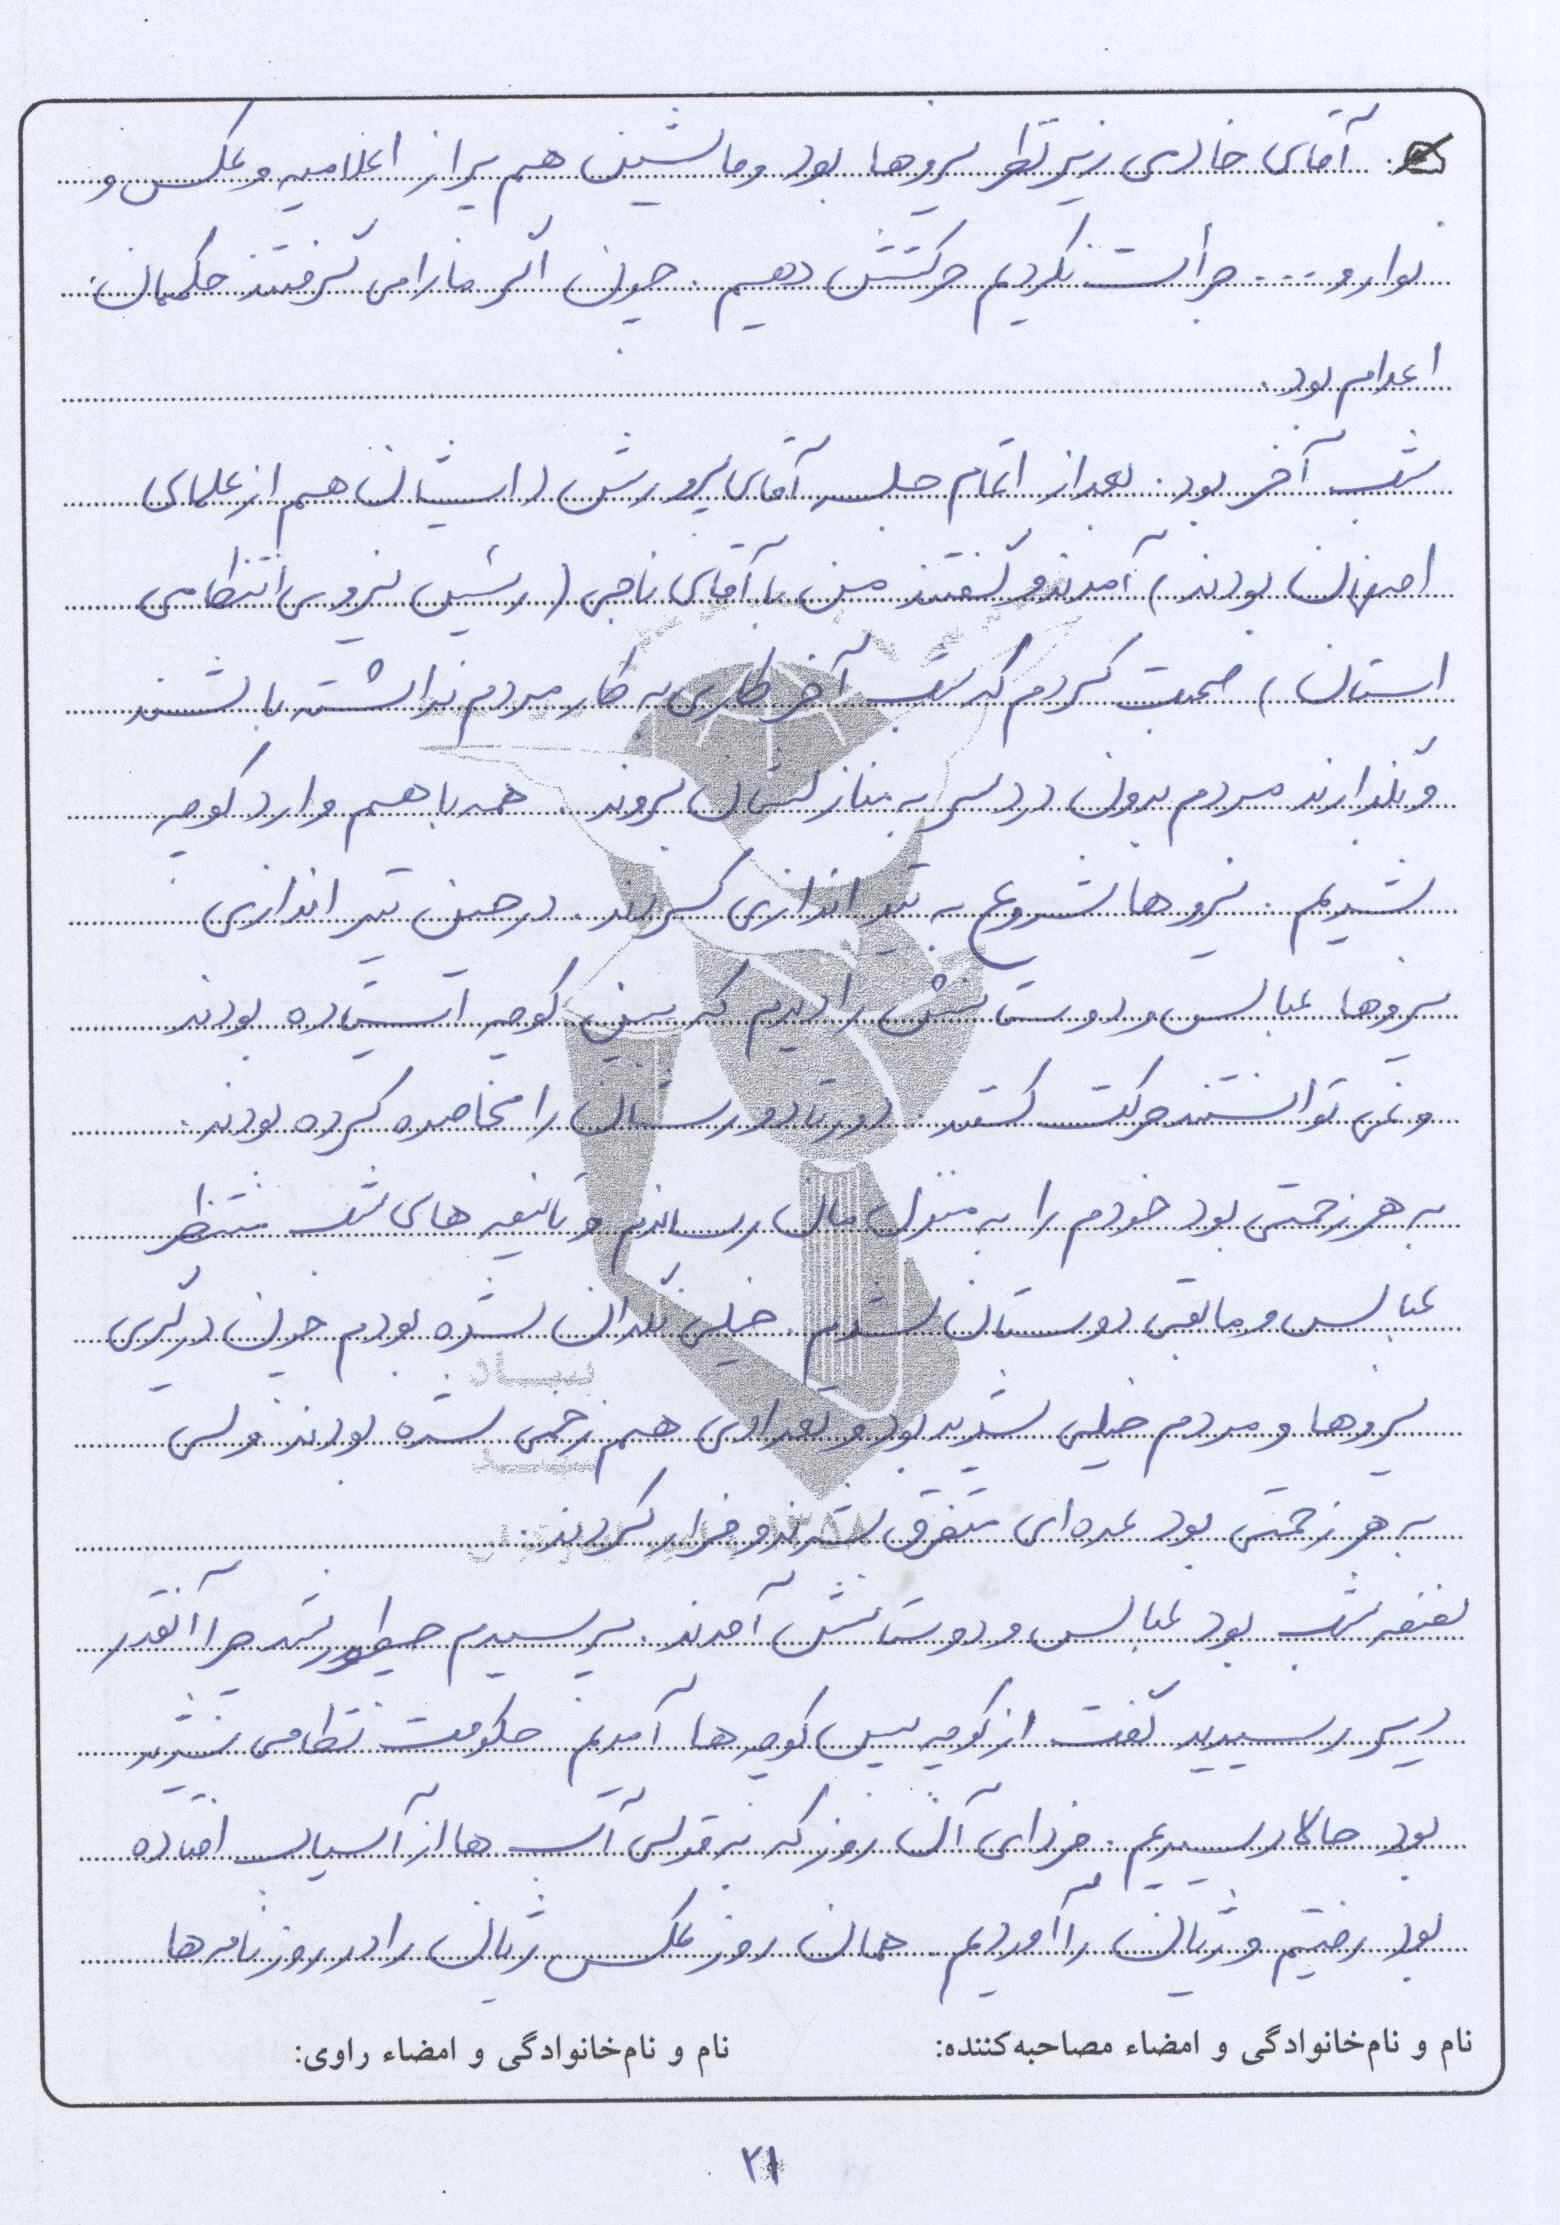 آقای خادمی زیر نظر نیروها بود و ماشین هم پر از اعلامیه و عکس و
نوار و .... جرأت نکردیم حرکتش دهیم. چون اگر ما را می گرفتند حکممان
اعدام بود.
شب آخر بود. بعد از اتمام جلسه آقای پرورش (ایشان هم از علمای
اصفهان بودند) آمدند و گفتند من با آقای ناجی (رئیس نیروی انتظامی
استان) صحبت کردم که شب آخر کاری به کار مردم نداشته باشند
و بگذارند مردم بدون دردسر به منازلشان بروند. همه با هم وارد کوچه
شدیم. نیروها شروع به تیراندازی کردند. در حین تیراندازی
نیروها عباس و دوستانش را دیدم که بین کوچه ایستاده بودند
و نمی توانستند حرکت کنند. دور تا دورشان را محاصره کرده بودند.
به هر زحمتی بود خودم را به منزل مان رساندم و تا نیمه های شب منتظر
عباس و مابقی دوستان شدم. خیلی نگران شده بودم چون درگیری
نیروها و مردم خیلی شدید بود و تعدادی هم زخمی شده بودند ولی
به هر زحمتی بود عده ای متفرق شدند و فرار کردند.
نصفه شب بود عباس و دوستانش آمدند. پرسیدم چطور شد چرا آنقدر
دیر رسیدید گفت از کوچه پس کوچه ها آمدیم حکومت نظامی شدید
بود حالا رسیدیم. فردای آن روز که به قولی آب ها از آسیاب افتاده
بود رفتیم و ژیان را آوردیم. همان روز عکس ژیان را در روزنامه ها
نام و نام‌خانوادگی و امضاء مصاحبه‌کننده:
نام و نام‌خانوادگی و امضاء راوی:
۲۱